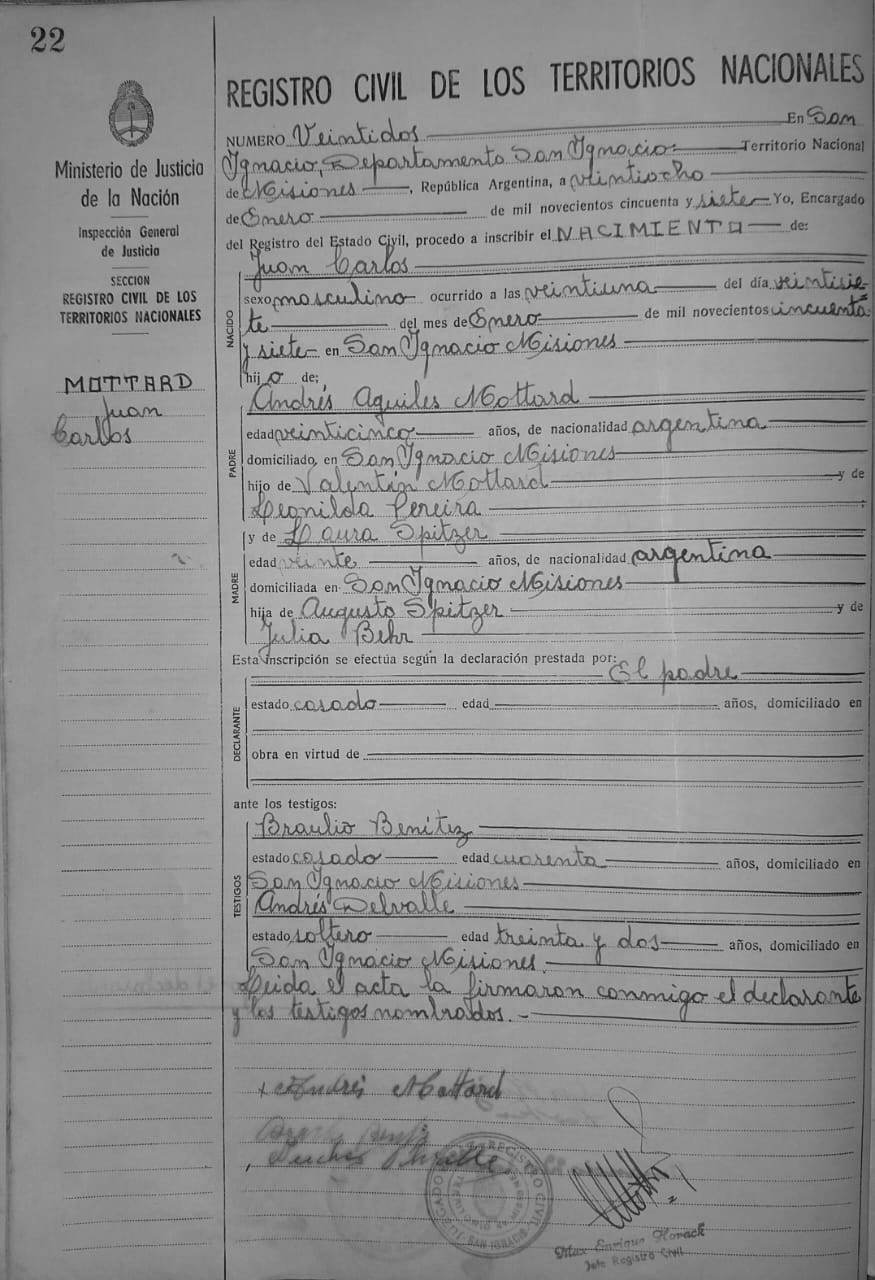 22
Ministerio de Justicia
de la Nación
Inspección General
de Justicia
SECCION
REGISTRO CIVIL DE LOS
TERRITORIOS NACIONALES
MOTTARD
Juan
Carlos
REGISTRO CIVIL DE LOS TERRITORIOS NACIONALES
NUMERO Veintidos En San
Ygnacio, Departamento San Ygnacio Territorio Nacional
de Misiones, República Argentina, a veintiocho
de Enero de mil novecientos cincuenta y siete Yo, Encargado
del Registro del Estado Civil, procedo a inscribir el NACIMIENTO de:
NACIDO
Juan Carlos
sexo masculino ocurrido a las veintiuna del día veintisie-
te del mes de Enero de mil novecientos cincuenta
y siete en San Ygnacio Misiones
hijo de;
PADRE
Andrés Aquiles Mottard
edad veinticinco años, de nacionalidad argentina
domiciliado, en San Ygnacio Misiones
hijo de Valentín Mottard y de
Leonilda Pereira
MADRE
y de Laura Spitzer
edad veinte años, de nacionalidad argentina
domiciliada en San Ygnacio Misiones
hija de Augusto Spitzer y de
Julia Behr
Esta inscripción se efectúa según la declaración prestada por: El padre
DECLARANTE
estado casado edad años, domiciliado en
obra en virtud de
ante los testigos:
TESTIGOS
Braulio Benítez
estado casado edad cuarenta años, domiciliado en
San Ygnacio Misiones
Andrés Delvalle
estado soltero edad treinta y dos años, domiciliado en
San Ygnacio Misiones.
Leida el acta la firmaron conmigo el declarante
y los testigos nombrados.
Andrés Mottard
REGISTRO CIVIL
SAN IGNACIO
Max Enrique Horack
Jefe Registro Civil